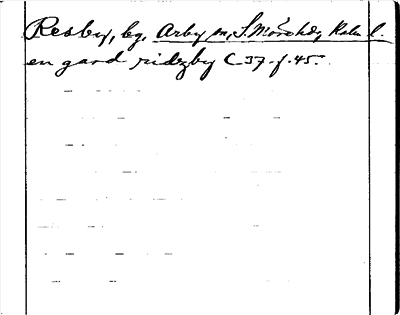 Resby, bg, Arby sn, S. Möre hd, Kalm l.
en gard ridzby C 37. f. 45.